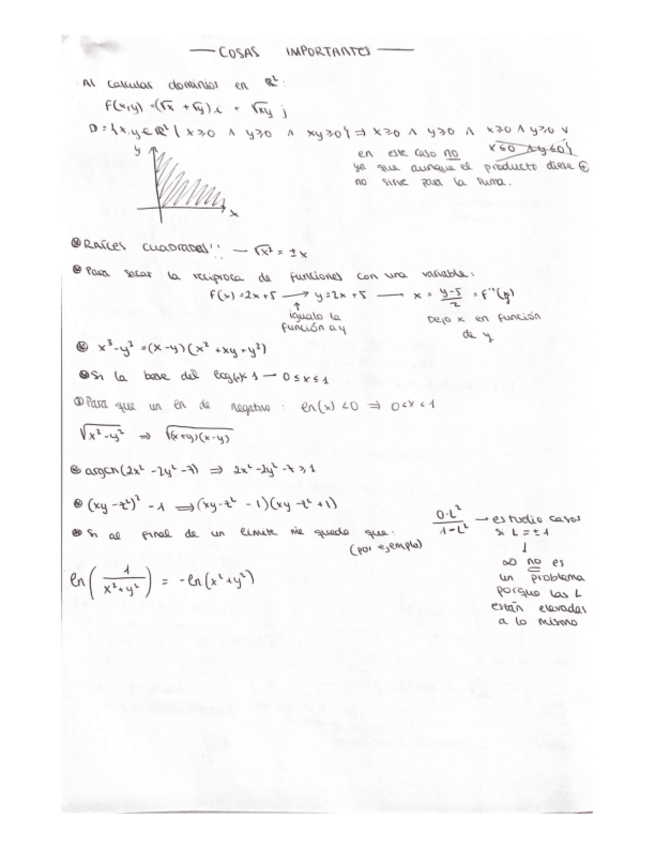 — COSAS IMPORTANTES —
Al calcular dominios en ℝ²:
f(x,y) = (√x + √y) i + √xy j
D = { x,y ∈ ℝ² { x≥0 ∧ y≥0 ∧ xy≥0 } ⇒ x≥0 ∧ y≥0 ∧ x≥0 ∧ y≥0 ∨
x≤0 ∧ y≤0 }
en este caso no
ya que aunque el producto diese ⊕
no sirve para la suma.
y
x
RAÍCES CUADRADAS!! — √x² = ± x
Para sacar la recíproca de funciones con una variable:
f(x) = 2x+5 → y = 2x+5 — x = y-5/2 = f⁻¹(y)
↑
igualo la
función a y
Dejo x en función
de y
x³-y³ = (x-y)(x² + xy + y²)
Si la base del 1 — 0 ≤ x ≤ 1
Para que un ln de negativo: ln(x) < 0 ⇒ 0 < x < 1
√x²-y² ⇒ √(x+y)(x-y)
argch(2x² - 2y² - 7) ⇒ 2x² - 2y² - 7 ≥ 1
(xy - z²)² - 1 ⇒ (xy - z² - 1)(xy - z² + 1)
Si al final de un límite me queda que:
(por ejemplo)
0·L²/1-L² → estudio casos
si L = ±1
↓
∞ no es
un problema
porque las L
están elevadas
a lo mismo
ln(1/x²+y²) = -ln(x²+y²)